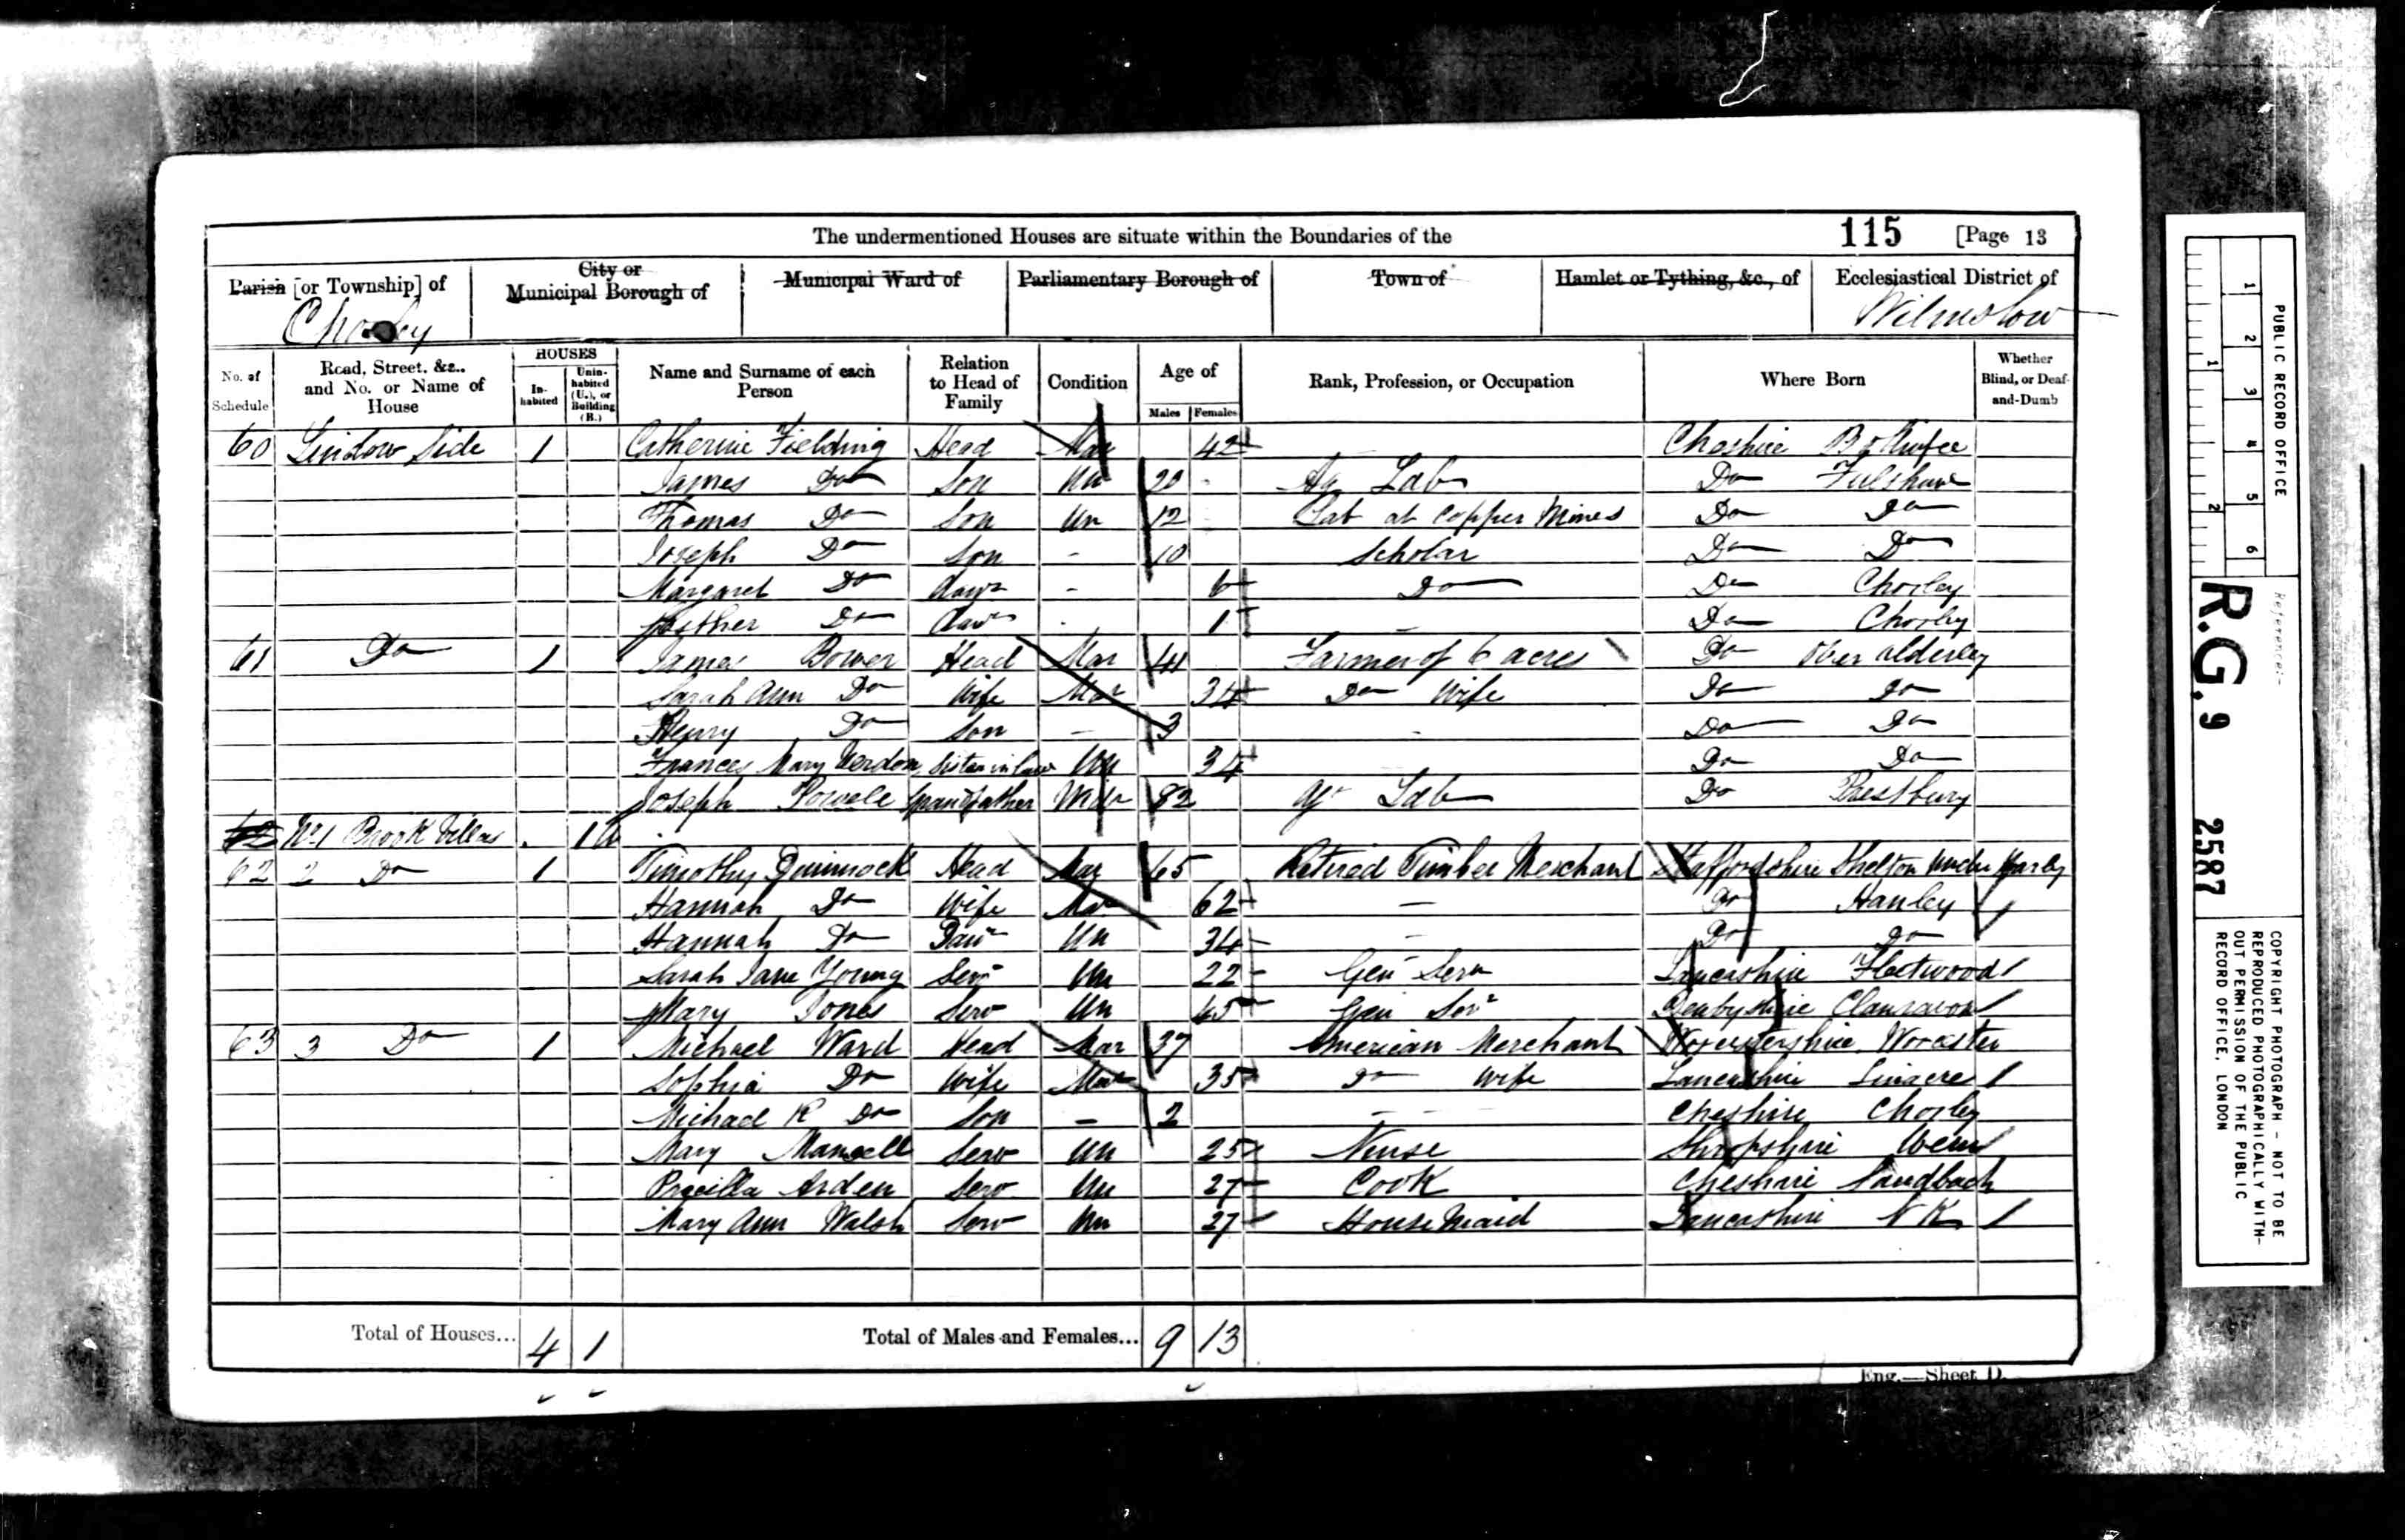 The undermentioned Houses are situate within the Boundaries of the 115 [Page 13
Parish [or Township] of City or Municipal Borough of Municipal Ward of Parliamentary Borough of Town of Hamlet or Tything, &c., of Ecclesiastical District of
Chorley Wilmslow
No. of Schedule Road, Street, &c., and No. or Name of House HOUSES In-habited Unin-habited (U.), or Building (B.) Name and Surname of each Person Relation to Head of Family Condition Age of Males Females Rank, Profession, or Occupation Where Born Whether Blind, or Deaf-and-Dumb
60 Lindow Side 1 Catherine Fielding Head Mar 42 Cheshire
James Do Son Un 20 Ag Lab Do Fulshaw
Thomas Do Son Un 12 Lab at Copper Mines Do Do
Joseph Do Son - 10 Scholar Do Do
Margaret Do Daur - 6 Do Do Chorley
Esther Do Daur - 1 - Do Chorley
61 Do 1 James Bower Head Mar 41 Farmer of 6 acres Do Over Alderley
Sarah Ann Do Wife Mar 34 Do Wife Do Do
Henry Do Son - 3 - Do Do
Frances Mary Sister in law Un 34 Do Do
Joseph Powell Grandfather Widr 82 Agr Lab Do Prestbury
62 No 1 Brook Villas 1 U
62 2 Do 1 Timothy Dimmock Head Mar 65 Retired Timber Merchant Staffordshire Shelton
Hannah Do Wife Mar 62 - Do Hanley
Hannah Do Daur Un 34 - Do Do
Sarah Jane Young Serv Un 22 Gen Serv Lancashire Fleetwood
Mary Jones Serv Un 65 Gen Servt Denbyshire
63 3 Do 1 Michael Ward Head Mar 37 American Merchant Worcestershire Worcester
Sophia Do Wife Mar 35 Do Wife Lancashire Linacre
Michael R Do Son - 2 - - Cheshire Chorley
Mary Mansell Serv Un 25 Nurse Shropshire Wem
Priscilla Arden Serv Un 27 Cook Cheshire Sandbach
Mary Ann Walsh Serv Un 27 House Maid Lancashire N K
Total of Houses... 4 1 Total of Males and Females... 9 13
Eng.—Sheet D.
PUBLIC RECORD OFFICE
1 2 3 4 5 6
1 2
Reference:-
R.G. 9 2587
COPYRIGHT PHOTOGRAPH - NOT TO BE
REPRODUCED PHOTOGRAPHICALLY WITH-
OUT PERMISSION OF THE PUBLIC
RECORD OFFICE, LONDON